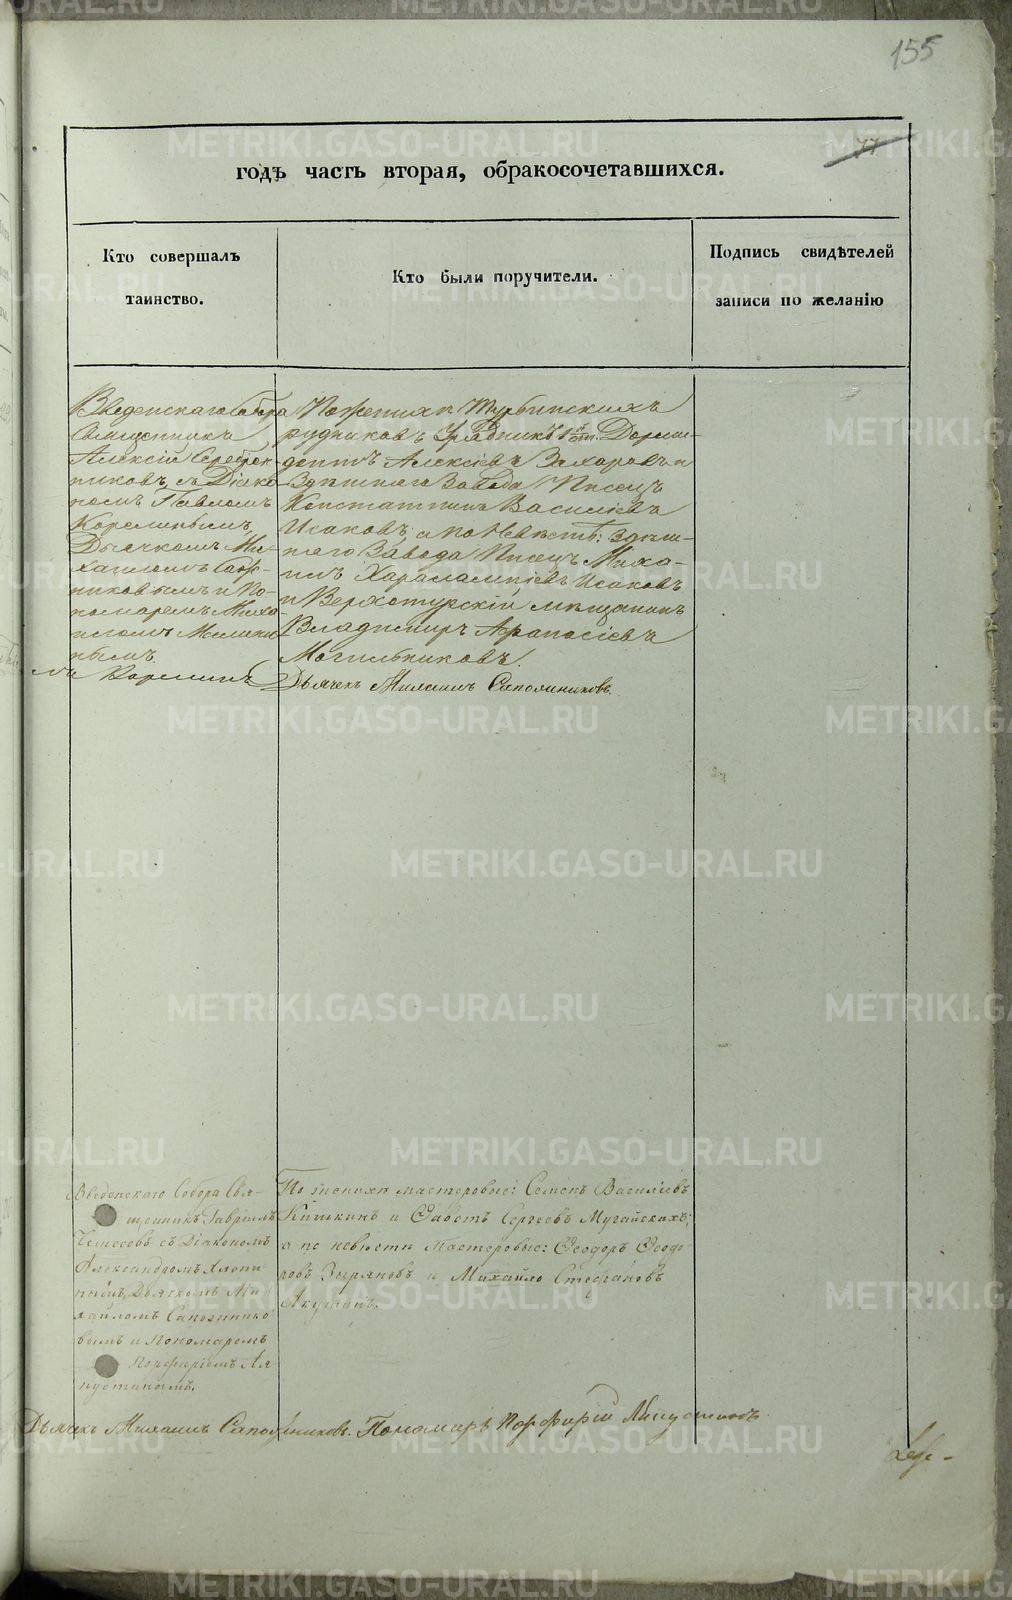 155
77
годъ часть вторая, обракосочетавшихся.
Кто совершалъ
таинство.
Кто были поручители.
Подпись свидѣтелей
записи по желанію
Введенскаго Собора
Священникъ
Алексій Серебрен-
никовъ, съ Діако-
номъ Павломъ
Корелинымъ,
Дьячкомъ Ми-
хаиломъ Сапож-
никовымъ и По-
номаремъ Миха-
иломъ
нымъ.
По женихѣ Турьинскихъ
рудниковъ Урядникъ 1й ст. Дорми-
донтъ Алексѣевъ Захаровъ и
Здѣшняго Завода Писецъ
Константинъ Василіевъ
Исаковъ; а по Невѣстѣ: здѣш-
няго Завода Писецъ Миха-
илъ Харалампіевъ Исаковъ
и Верхотурскій мѣщанинъ
Владиміръ Афанасіевъ
Могильниковъ.
Дьячекъ Михаилъ Сапожниковъ.
Введенскаго Собора Свя-
щенникъ Гавріилъ
съ Діакономъ
Александромъ Хлопи-
нымъ, Дьячкомъ Ми-
хайломъ Сапожнико-
вымъ и Пономаремъ
Порфиріемъ Ля-
пустинымъ.
По женихѣ мастеровые: Семенъ Василіевъ
Кишкинъ и Сергѣевъ Мугайскихъ;
а по невѣстѣ Мастеровые: Ѳеодоръ Ѳеодо-
ровъ Зыряновъ и Михайло Стефановъ
Якутинъ.
Дьячекъ Михаилъ Сапожниковъ. Пономарь Порфирій Ляпустинъ
METRIKI.GASO-URAL.RU